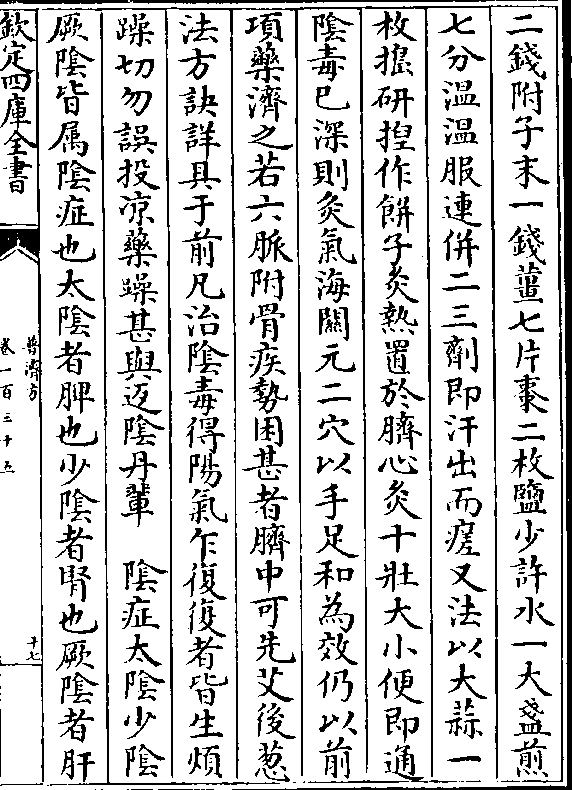 二錢附子末一錢薑七片棗二枚鹽少許水一大盞煎
七分温温服連併二三劑即汗出而瘥又法以大蒜一
枚搗研捏作餅子炙熱置於臍心灸十壯大小便即通
陰毒已深則灸氣海關元二穴以手足和為效仍以前
項藥濟之若六脈附骨疾勢困甚者臍中可先艾後葱
法方訣詳具于前凡治陰毒得陽氣乍復復者皆生煩
躁切勿誤投凉藥躁甚與返陰丹輩　陰症太陰少陰
厥陰皆属陰症也太陰者脾也少陰者腎也厥陰者肝
欽定四庫全書
普濟方
卷一百三十五
十七